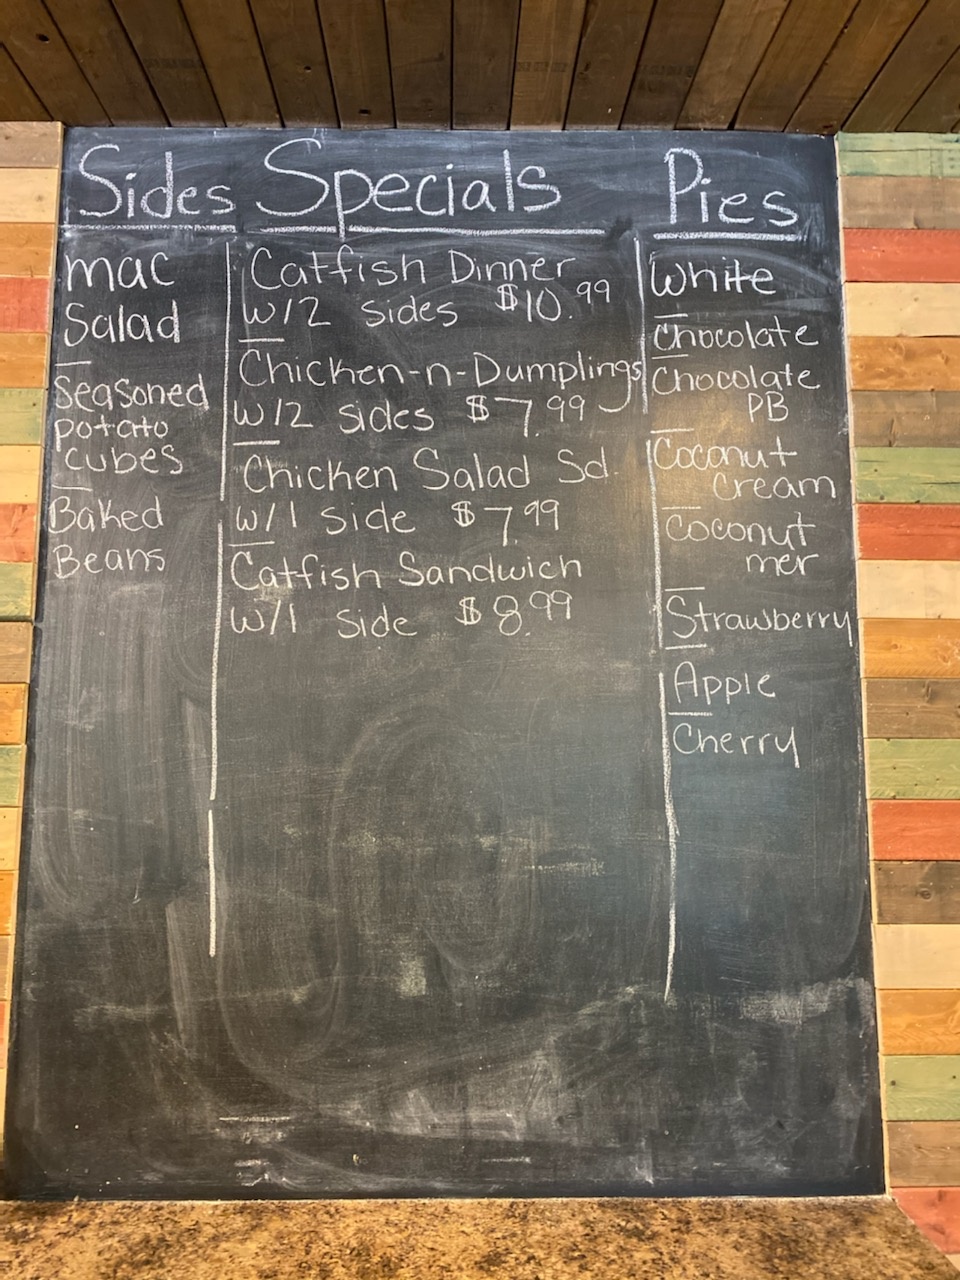 Sides
mac
Salad
Seasoned
potato
cubes
Baked
Beans
Specials
Catfish Dinner
w/2 sides $10.99
Chicken-n-Dumplings
w/2 sides $7.99
Chicken Salad Sd.
w/1 side $7.99
Catfish Sandwich
w/1 side $8.99
Pies
White
Chocolate
Chocolate
PB
Coconut
Cream
Coconut
mer
Strawberry
Apple
Cherry